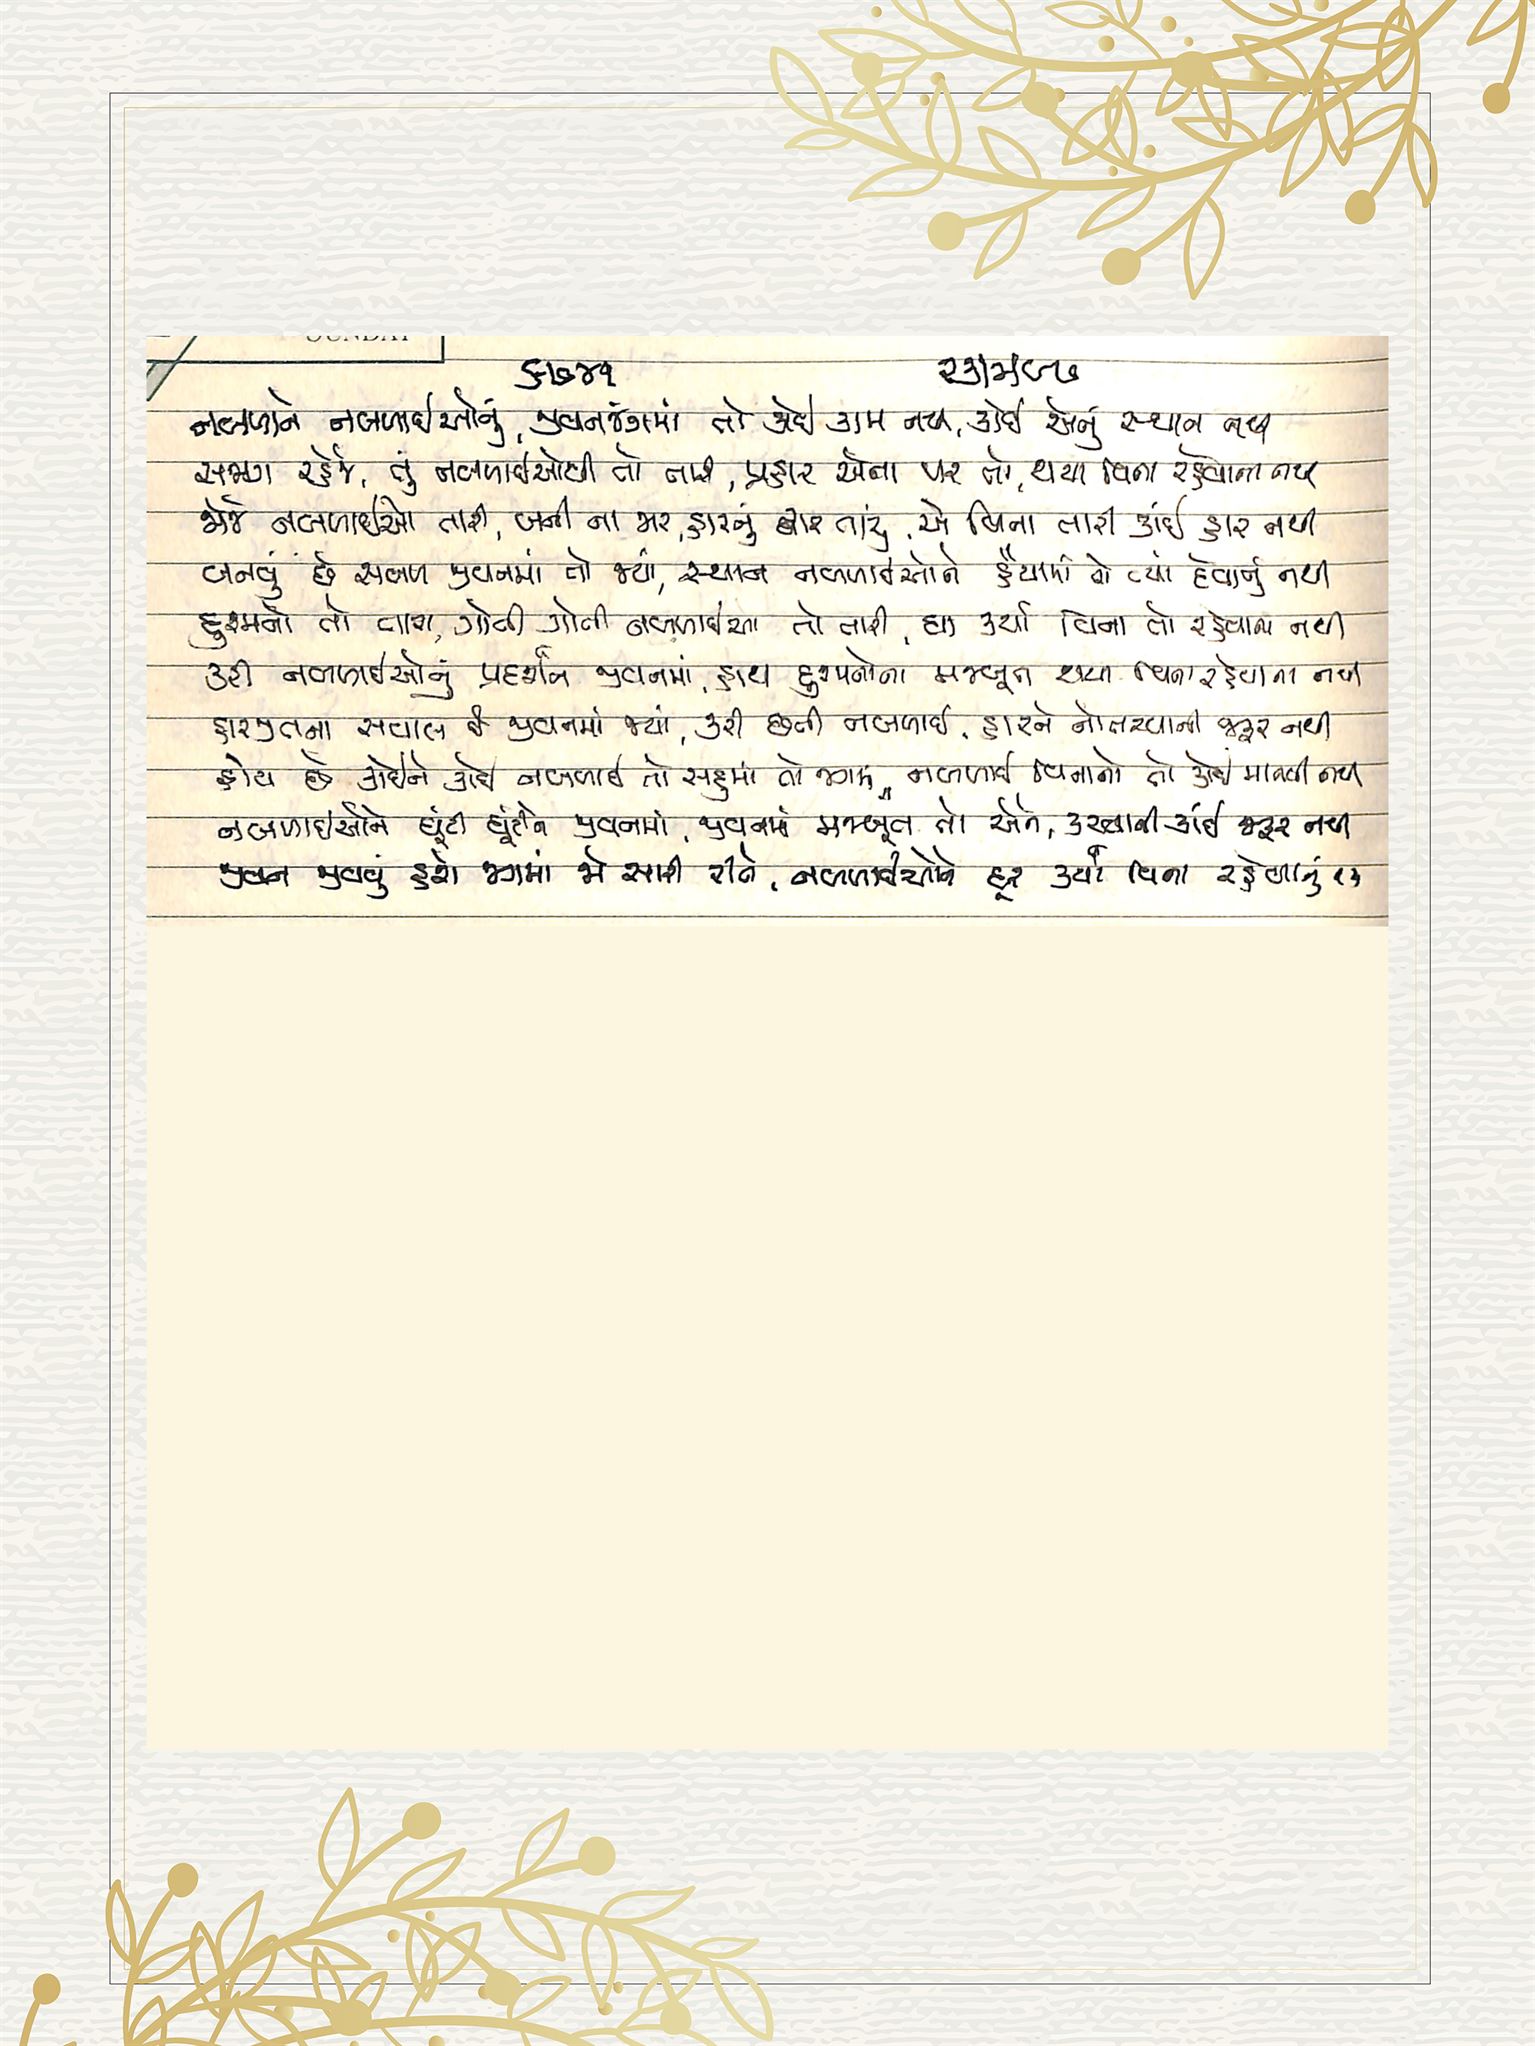 નબળાને નબળાઈઓનું, જીવનજંગમાં તો કોઈ કામ નથી, કોઈ એનું સ્થાન નથી
સજાગ રહેજે, તું નબળાઈઓથી તો તારી, પ્રહાર એના પર તો, થયા વિના રહેવાના નથી
જોજે નબળાઈઓ તારી, બની ના જાય, હારનું દ્વાર તારું, એ વિના તારી કાંઈ હાર નથી
બનવું છે સબળ જીવનમાં તો જ્યાં, સ્થાન નબળાઈઓને હૈયામાં તો ત્યાં દેવાનું નથી
દુશ્મનો તો તારા, ગોતી ગોતી નબળાઈઓ તો તારી, ઘા કર્યા વિના તો રહેવાના નથી
કરી નબળાઈઓનું પ્રદર્શન જીવનમાં, હાથ દુશ્મનોના મજબૂત થયા વિના રહેવાના નથી
હારજીતના સવાલ છે જીવનમાં જ્યાં, કરી છતી નબળાઈ, હારને નોતરવાની જરૂર નથી
હોય છે કોઈને કોઈ નબળાઈ તો સહુમાં તો જગમાં, નબળાઈ વિનાનો તો કોઈ માનવી નથી
નબળાઈઓને ઘૂંટી ઘૂંટીને જીવનમાં, જીવનમાં મજબૂત તો એને, કરવાની કાંઈ જરૂર નથી
જીવન જીવવું હશે જગમાં જો સારી રીતે, નબળાઈઓને દૂર કર્યા વિના રહેવાનું